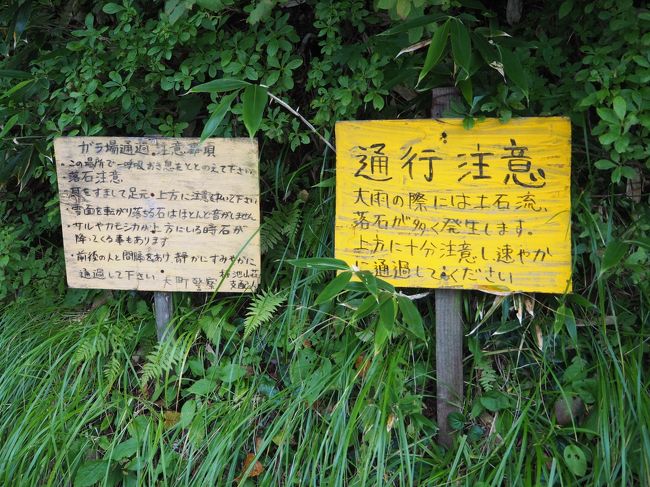 ガラ場通過 注意事項
・この場所で一呼吸おき息をととのえて下さい
落石注意
・耳をすまして足元・上方に注意を払いて下さい
・雪面を転がり落ちる石はほとんど音がしません
・サルやカモシカが上方にいる時石が
降ってくる事もあります
・前後の人と間隔をあけ静かにすみやかに
通過して下さい・大町警察
山荘
支配人
通行注意
大雨の際には土石流、
落石が多く発生します。
上方に十分注意し速やか
に通過してください